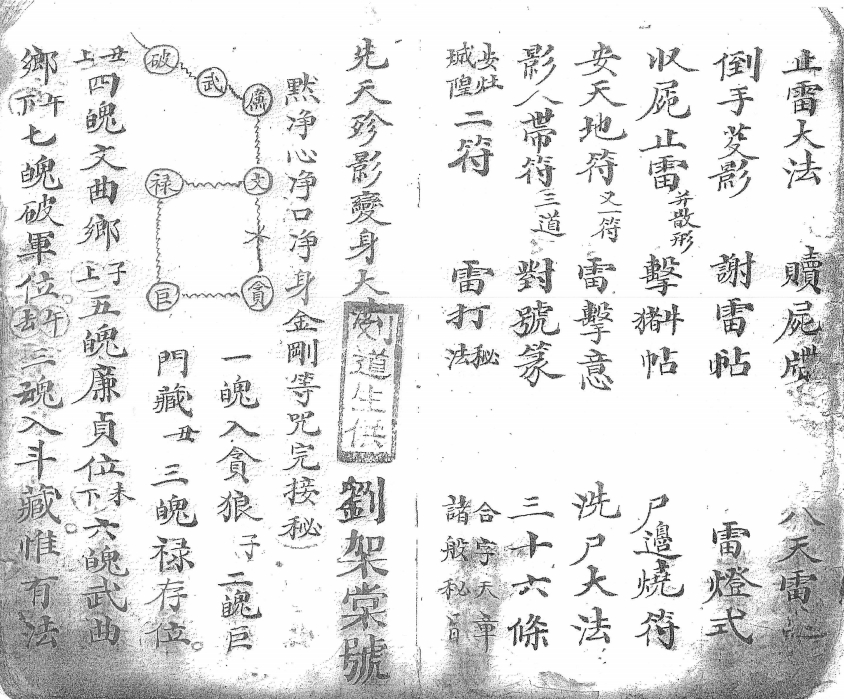 止雷大法 贖屍牒 八天雷
倒手芟影 謝雷帖 雷燈式
收屍止雷 并散形 擊猪牛帖 尸邊燒符
安天地符 又一符 雷擊意 洗尸大法
影人帶符 三道 對號篆 三十六條
安灶城隍二符 雷打秘法 合字天章諸般秘旨
先天殄影變身大法 劉架棠號
劉道生
默净心净口净身金剛等咒完接秘
破
武
廉
文
禄
巨
貪
一魄入貪狼子 二魄巨
門藏丑 三魄禄存位。
丑上四魄文曲鄉 子上五魄廉貞位 未下六魄武曲
鄉 午下七魄破軍位。午去三魂入斗藏。惟有法